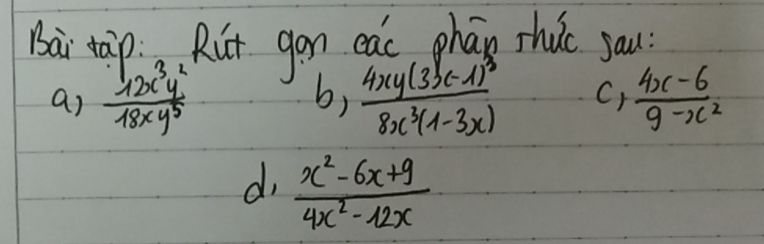 Bài tập: Rút gọn các phân thức sau:
a, 12x³y²/18xy⁵ b, 4xy(3x-1)³/8x³(1-3x) c, 4x-6/9-x²
d, x²-6x+9/4x²-12x